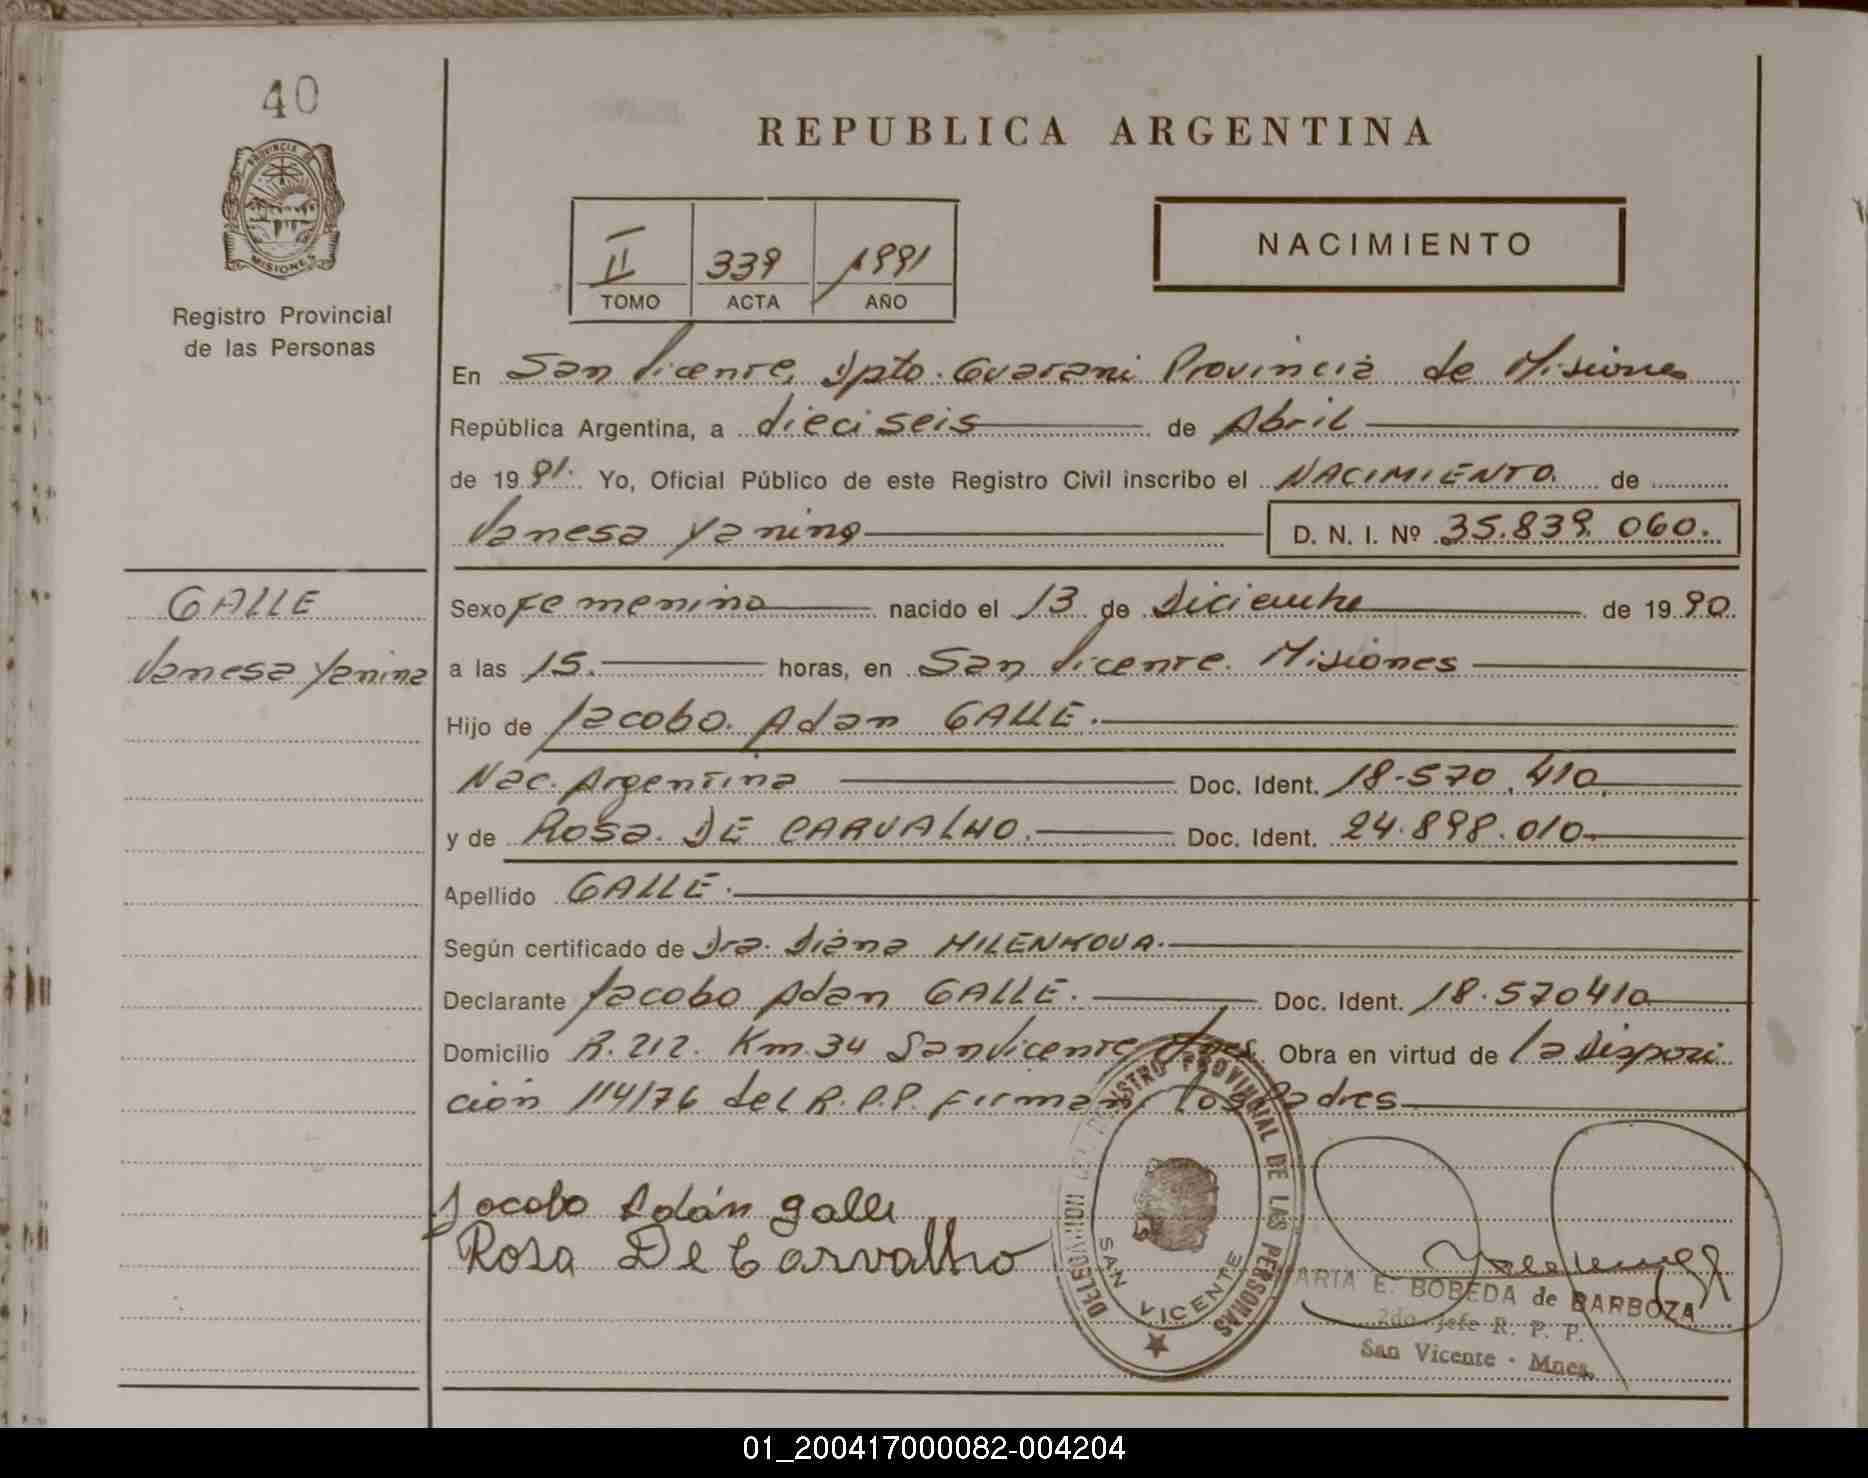 40
PROVINCIA DE
MISIONES
Registro Provincial
de las Personas
REPUBLICA ARGENTINA
II 339 1991
TOMO ACTA AÑO
NACIMIENTO
En San Vicente, Dpto. Guarani Provincia de Misiones
República Argentina, a dieciseis de Abril
de 1991. Yo, Oficial Público de este Registro Civil inscribo el NACIMIENTO. de
Vanesa Yanina D. N. I. Nº 35.839.060.
GALLE
Vanesa Yanina
Sexo Femenino nacido el 13 de Diciembre de 1990.
a las 15. horas, en San Vicente. Misiones
Hijo de Jacobo. Adan GALLE.
Nac. Argentina Doc. Ident. 18.570.410
y de Rosa. DE CARVALHO. Doc. Ident. 24.898.010
Apellido GALLE.
Según certificado de Dra. Diana MILENKOVA.
Declarante Jacobo Adan GALLE. Doc. Ident. 18.570410
Domicilio R. 212. Km. 34 San Vicente, Mnes. Obra en virtud de la disposi
ción 114/76 del R.P.P. Firman los Padres
Jocobo Adán galle
Rosa De Carvalho
DELEGACION DEL REGISTRO PROVINCIAL DE LAS PERSONAS
SAN VICENTE
MARIA E. BOBEDA de BARBOZA
2do. Jefe R. P. P.
San Vicente - Mnes.
01_200417000082-004204